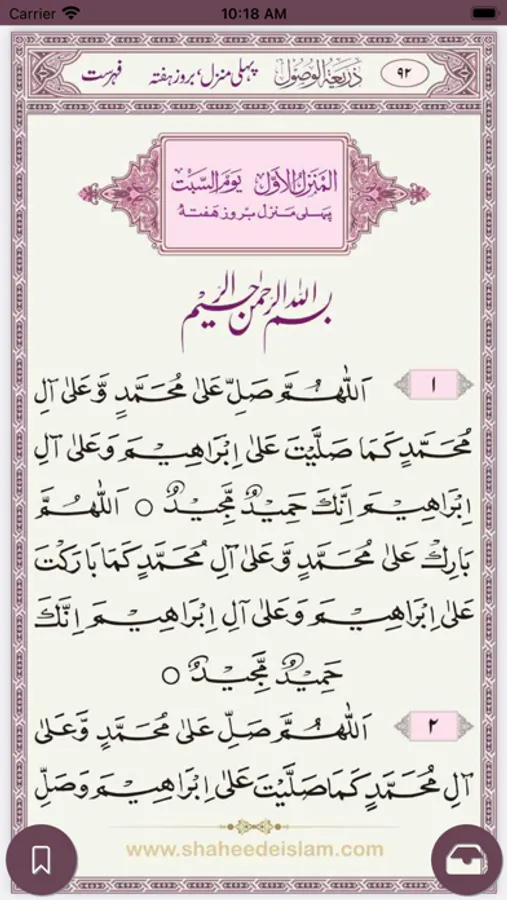 Carrier 10:18 AM
۹۲ ذریعۃ الوصول پہلی منزل، بروز ہفتہ فہرست
اَلمَنزِلُ الاَوَّل یَومُ السَّبت
پہلی منزل بروز ہفتہ
بسم اللہ الرحمن الرحیم
۱ اَللّٰهُمَّ صَلِّ عَلٰی مُحَمَّدٍ وَّعَلٰی اٰلِ
مُحَمَّدٍ كَمَا صَلَّيْتَ عَلٰی اِبْرَاهِيْمَ وَعَلٰی اٰلِ
اِبْرَاهِيْمَ اِنَّكَ حَمِيْدٌ مَّجِيْدٌ ○ اَللّٰهُمَّ
بَارِكْ عَلٰی مُحَمَّدٍ وَّعَلٰی اٰلِ مُحَمَّدٍ كَمَا بَارَكْتَ
عَلٰی اِبْرَاهِيْمَ وَعَلٰی اٰلِ اِبْرَاهِيْمَ اِنَّكَ
حَمِيْدٌ مَّجِيْدٌ ○
۲ اَللّٰهُمَّ صَلِّ عَلٰی مُحَمَّدٍ وَّعَلٰی
اٰلِ مُحَمَّدٍ كَمَا صَلَّيْتَ عَلٰی اِبْرَاهِيْمَ وَصَلِّ
www.shaheedeislam.com